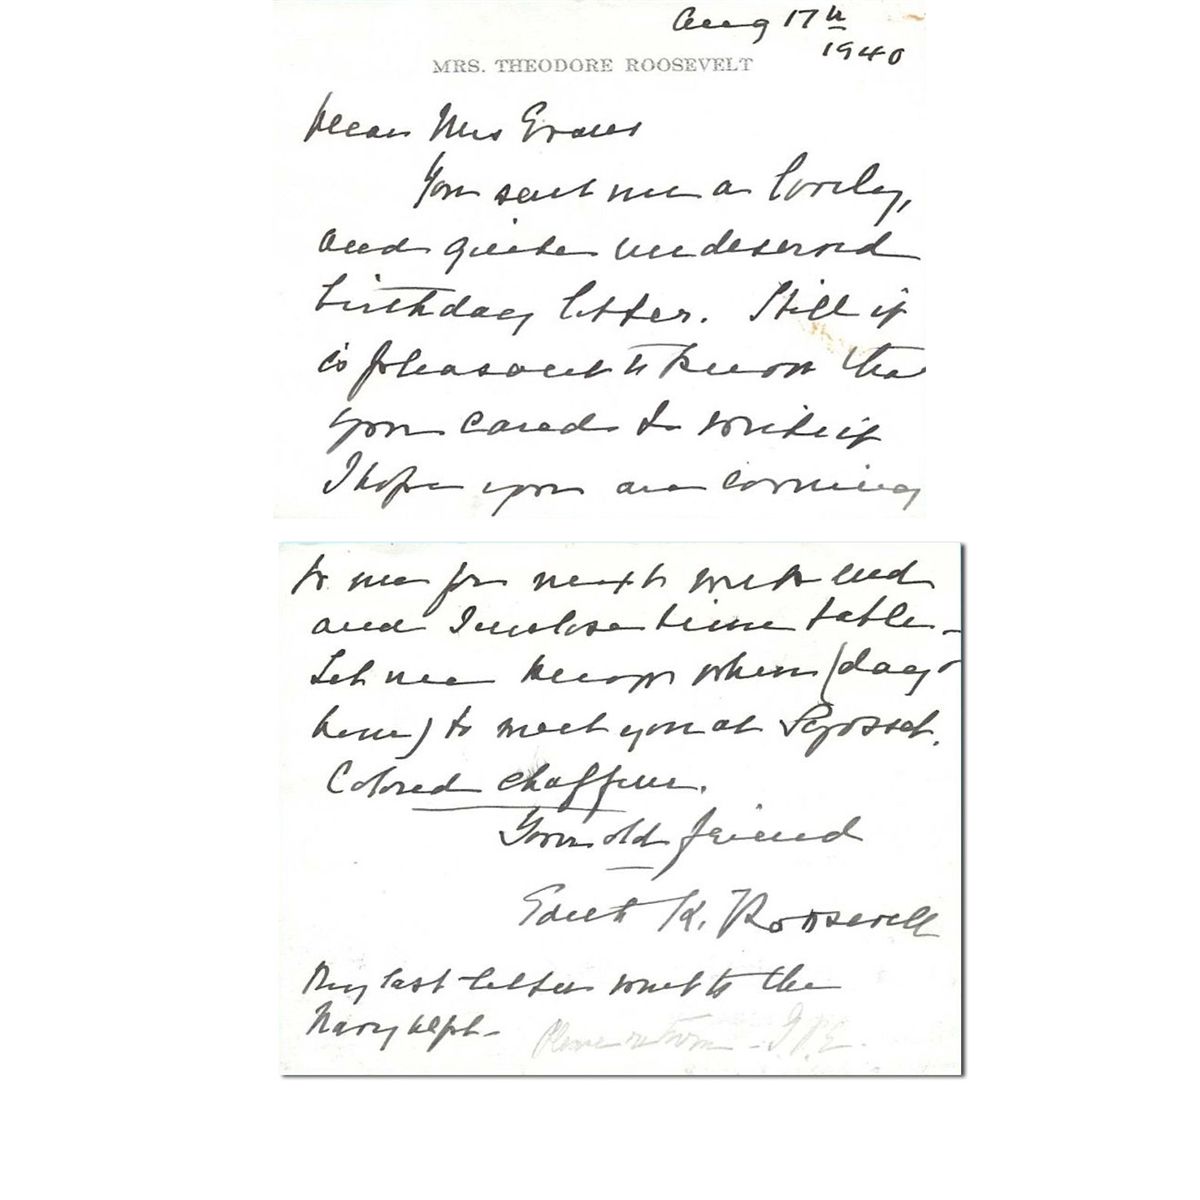 Aug 17th
1940
MRS. THEODORE ROOSEVELT
Dear Mrs Evans
You sent me a lovely,
and quite undeserved
birthday letter. Still it
is pleasant to know tha
you cared to write it
I hope you are coming
to me for next week end
and I enclose time table -
Let me know when (day &
hour) to meet you at Syosset.
Colored chaffeur.
Your old friend
Edith K. Roosevelt
My last letter went to the
Navy Dept -
Please return - I P E.